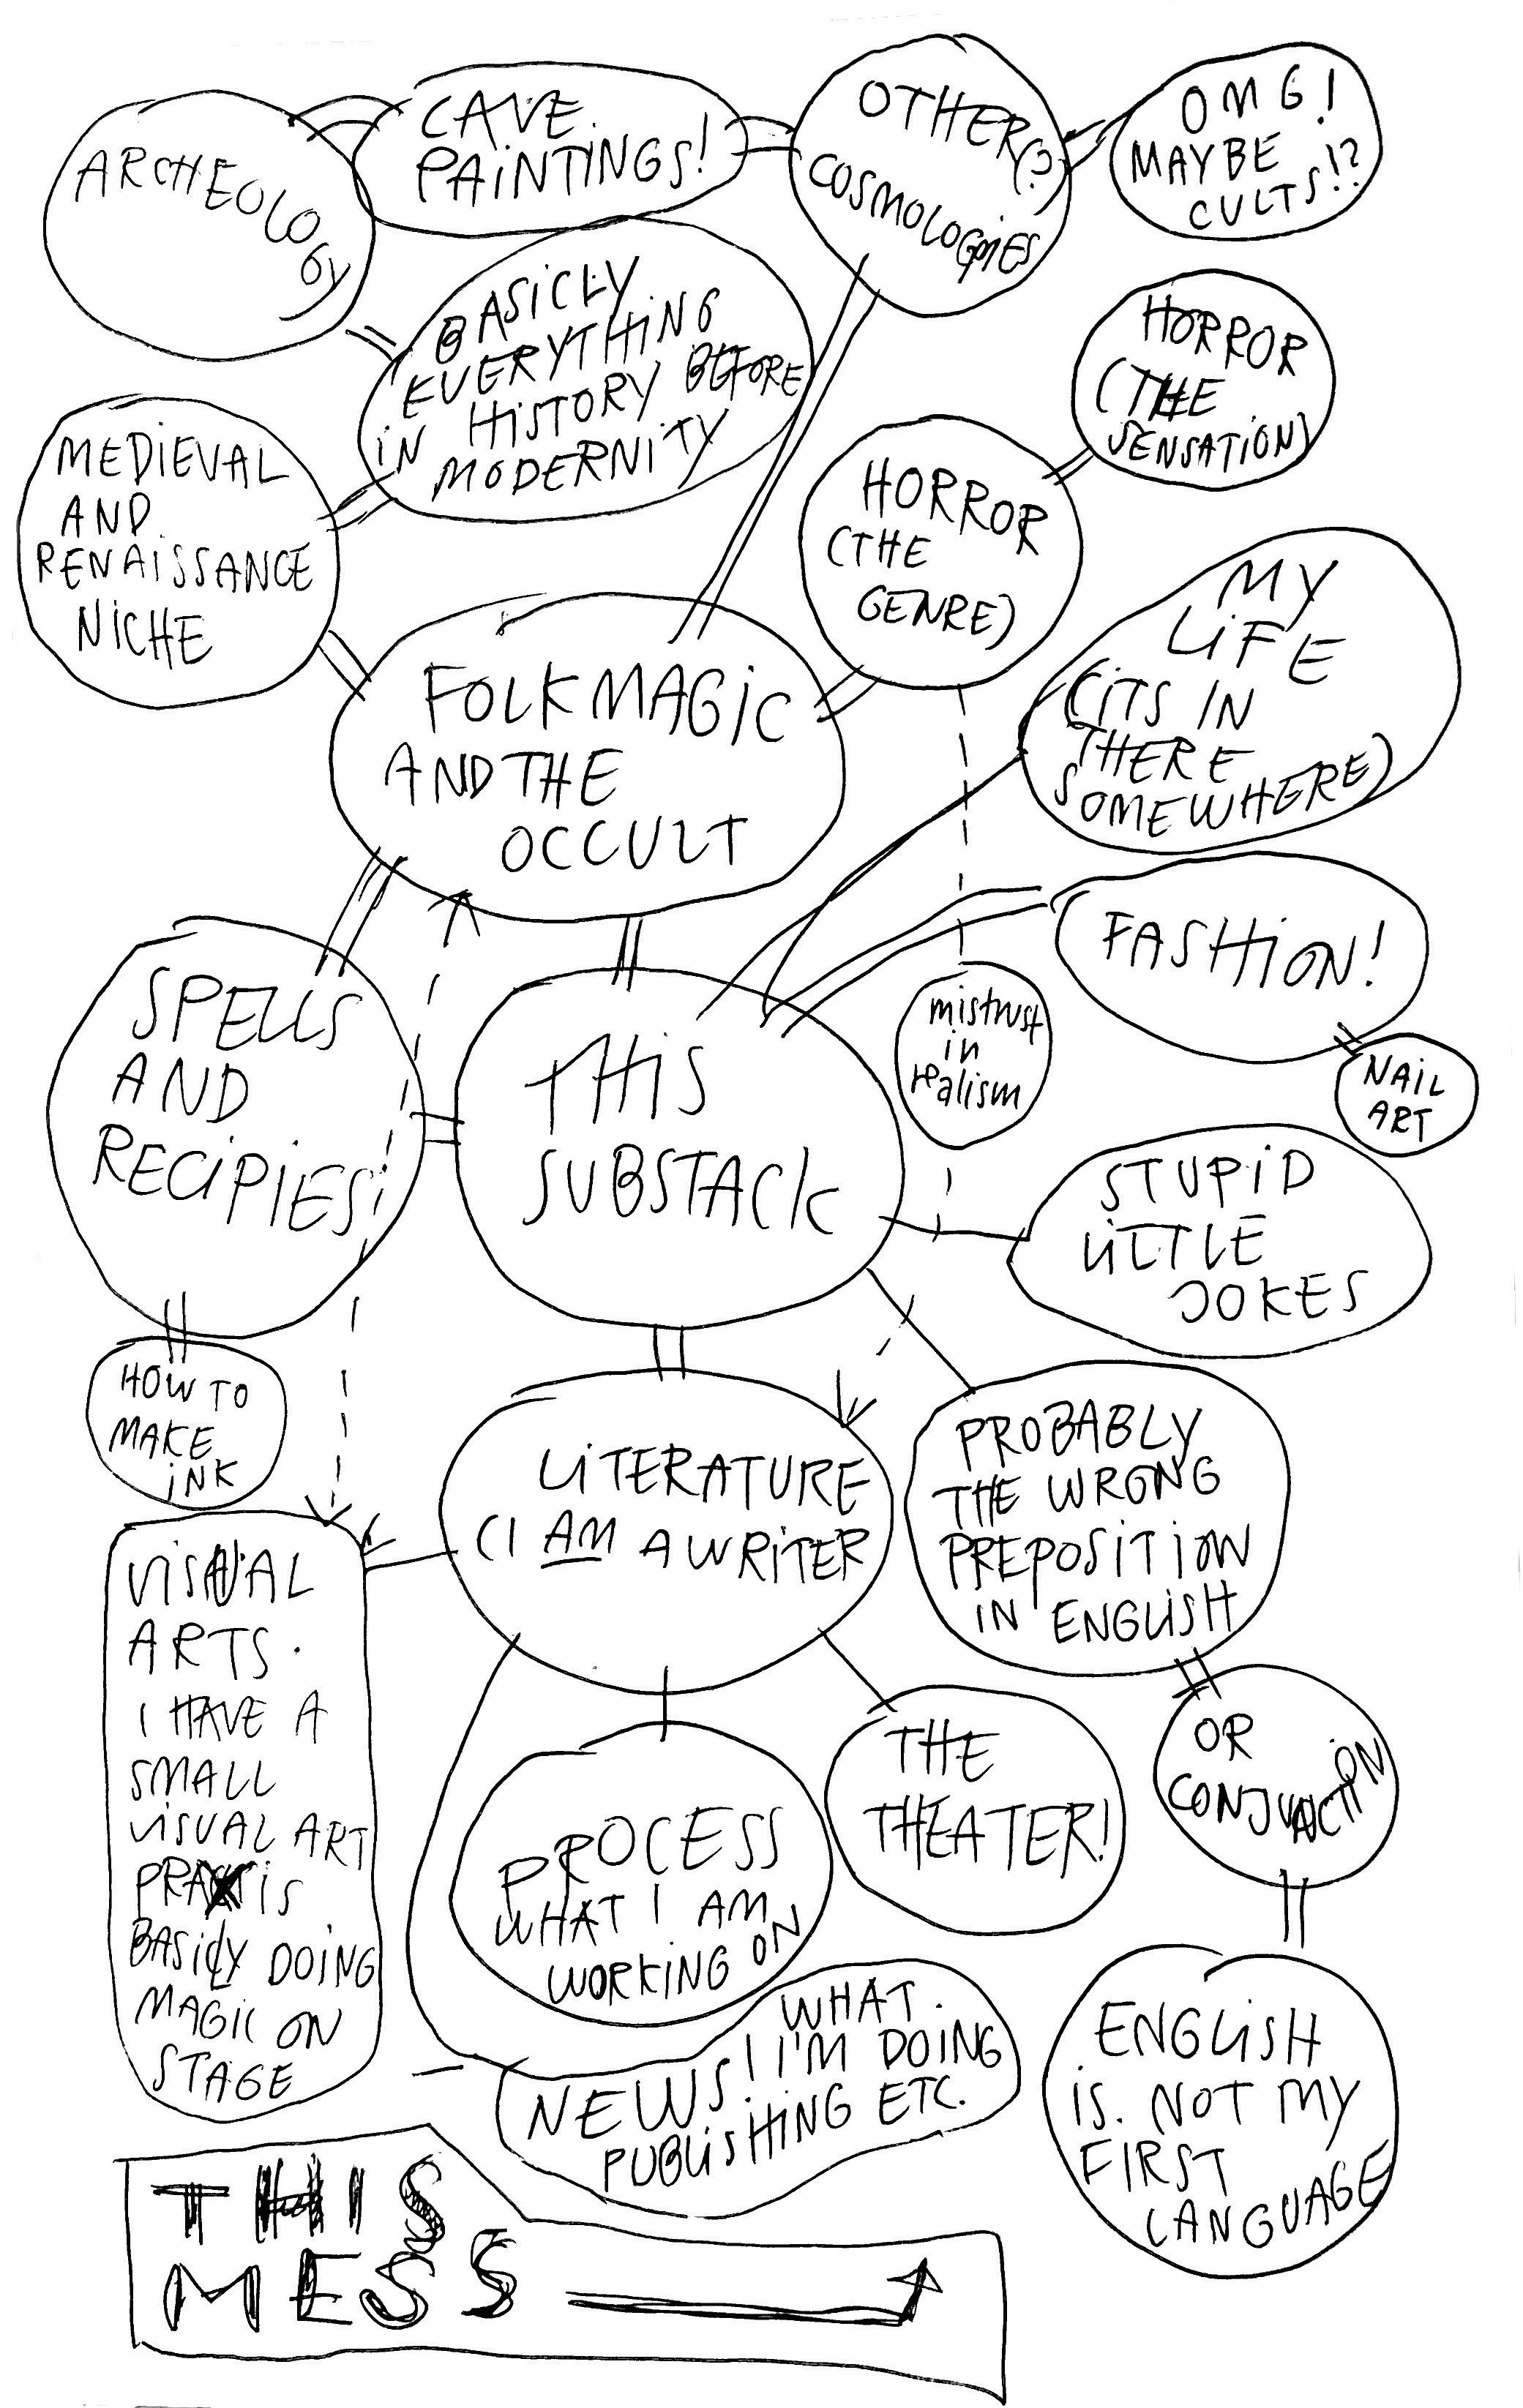 ARCHEOLOGY
CAVE
PAINTINGS!
OTHER(?)
COSMOLOGIES
OMG!
MAYBE
CULTS!?
BASICLY
EVERYTHING
IN HISTORY BEFORE
MODERNITY
HORROR
(THE
SENSATION)
MEDIEVAL
AND
RENAISSANCE
NICHE
HORROR
(THE
GENRE)
MY
LIFE
(ITS IN
THERE
SOMEWHERE)
FOLKMAGIC
AND THE
OCCULT
FASHION!
NAIL
ART
SPELLS
AND
RECIPIES!
THIS
SUBSTACK
mistrust
in
realism
STUPID
LITTLE
JOKES
HOW TO
MAKE
INK
LITERATURE
(I AM A WRITER
PROBABLY
THE WRONG
PREPOSITION
IN ENGLISH
OR
CONJUNCTION
ENGLISH
IS NOT MY
FIRST
LANGUAGE
VISUAL
ARTS.
I HAVE A
SMALL
VISUAL ART
PRAXIS
BASICLY DOING
MAGIC ON
STAGE
PROCESS
WHAT I AM
WORKING ON
THE
THEATER!
NEWS! WHAT
I'M DOING
PUBLISHING ETC.
THIS
MESS